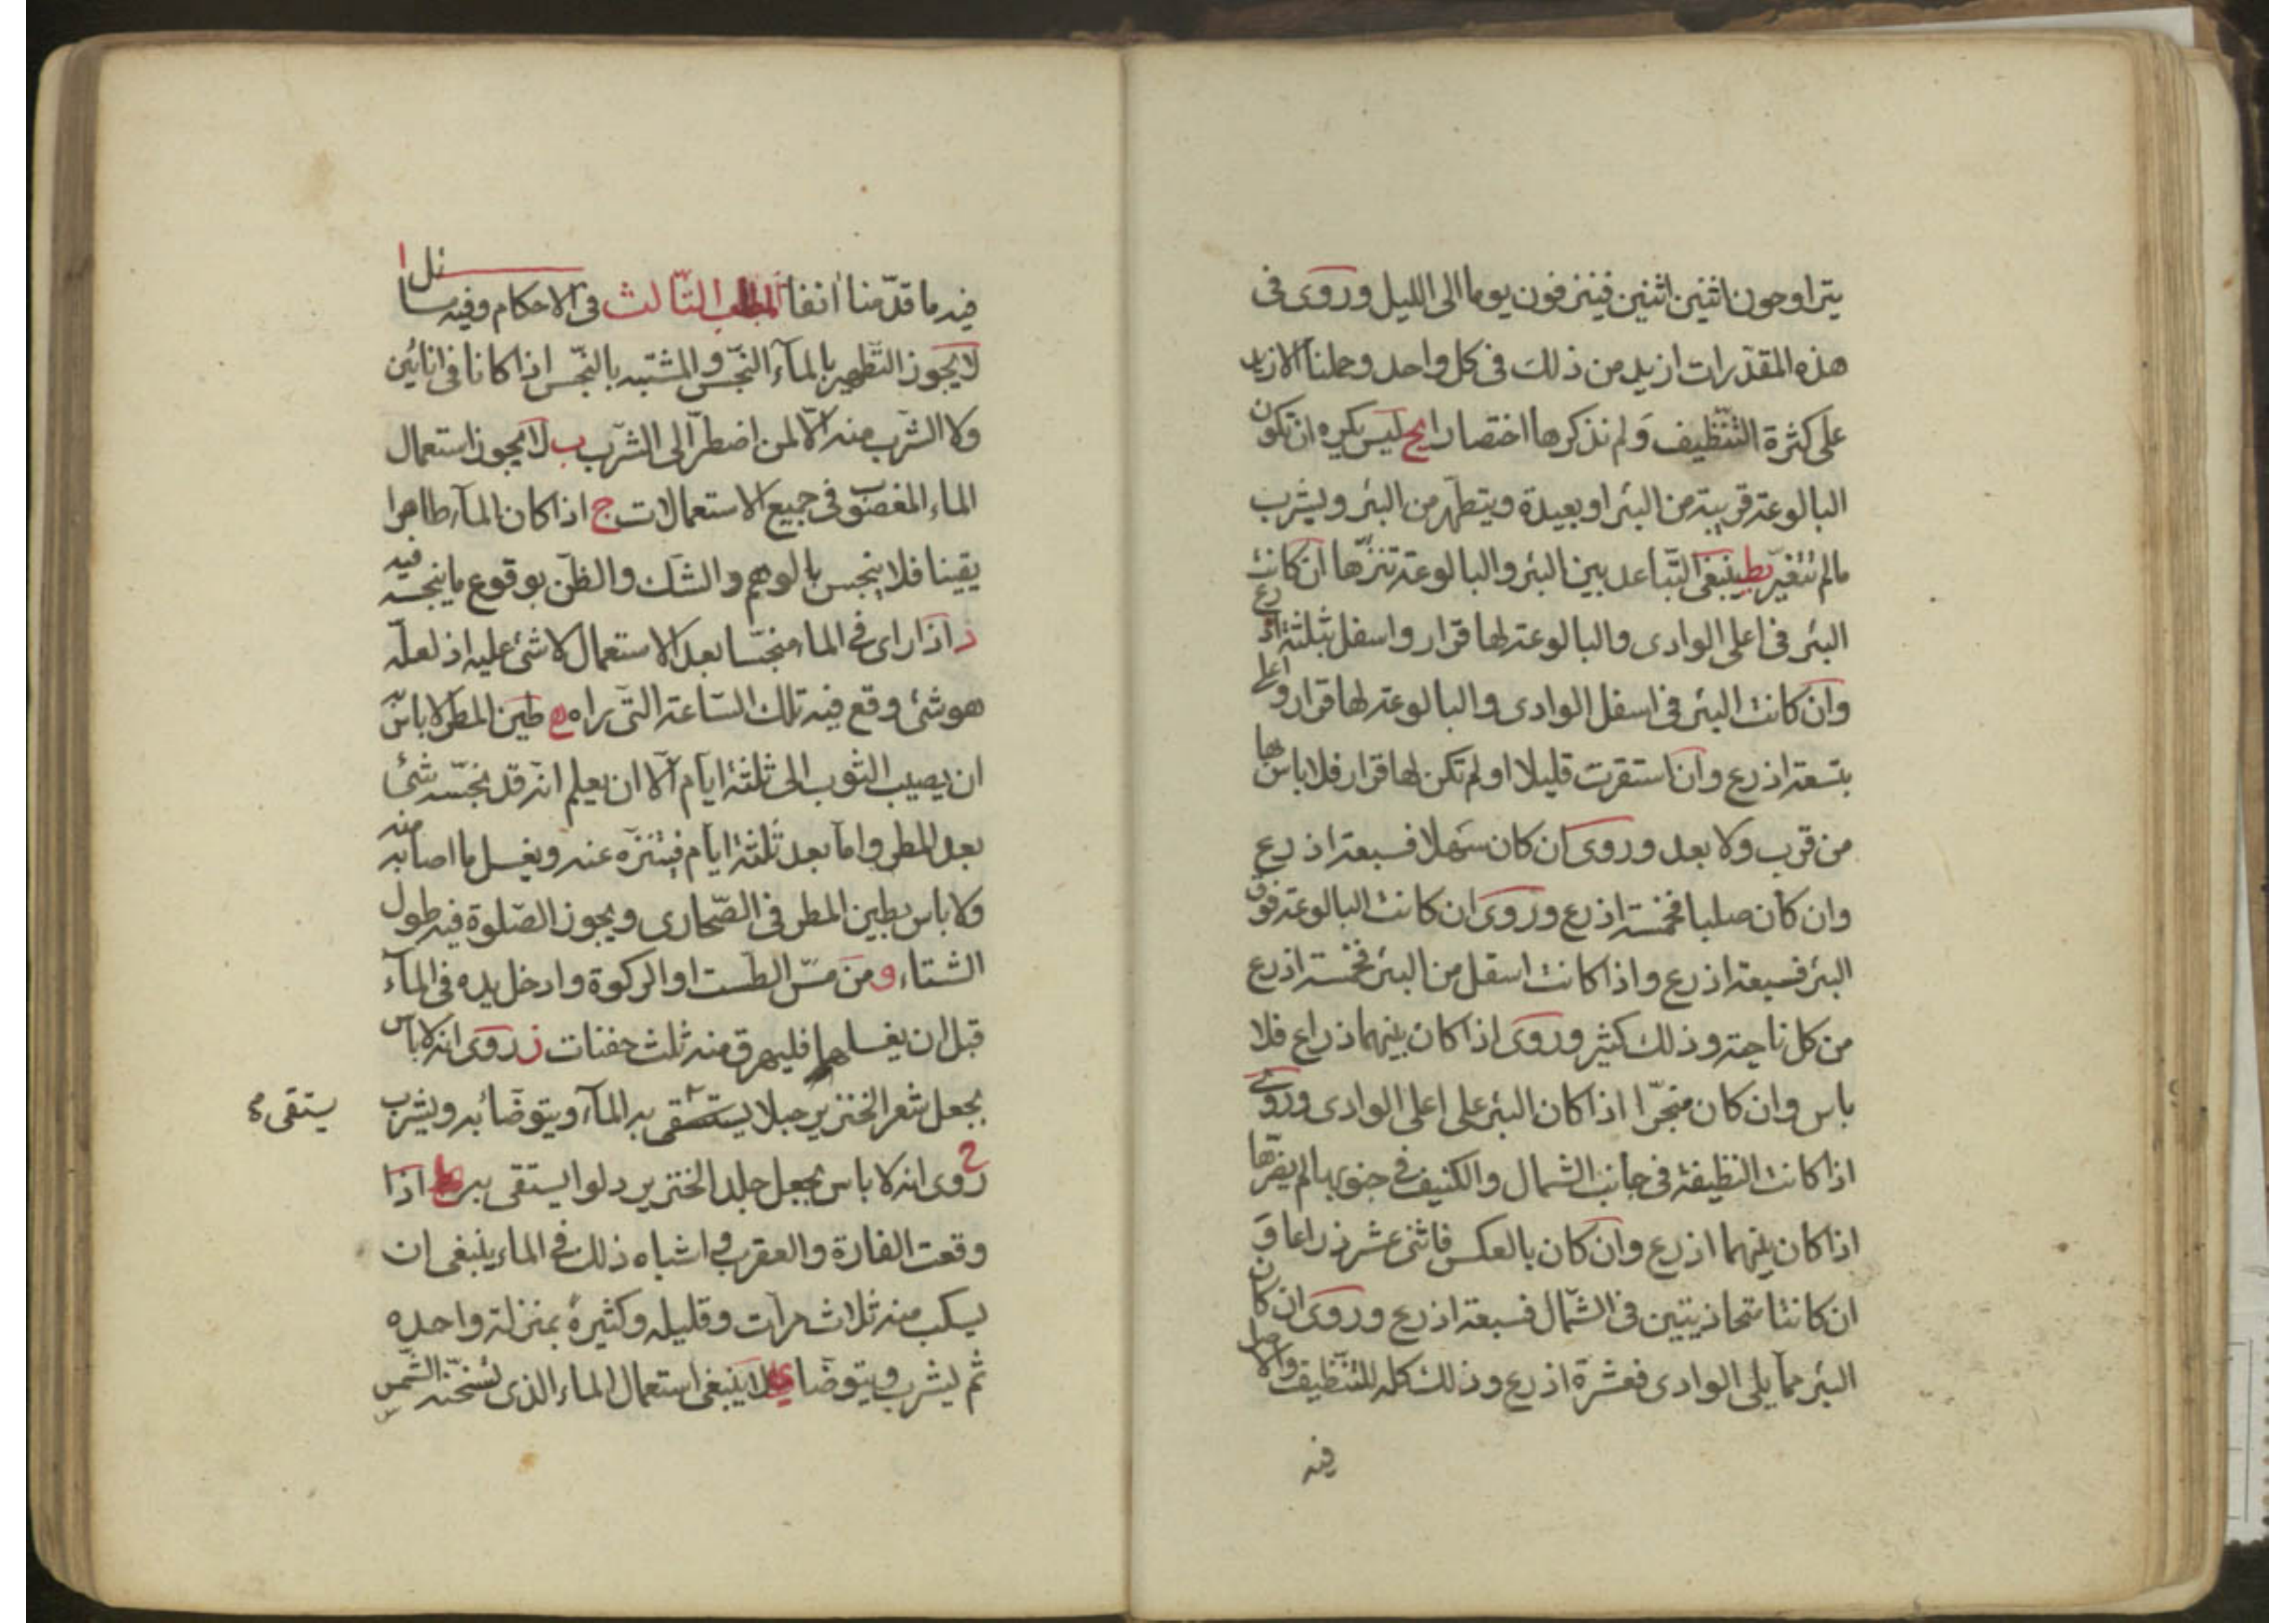 يتراوحون اثنين اثنين فينزفون يوما الى الليل وروى فى
هذه المقدّرات ازيد من ذلك فى كل واحد وحملنا الازيد
على كثرة التّنظيف ولم نذكرها اختصارا يح ليس يكره ان تكون
البالوعة قريبة من البئر او بعيدة ويتطهّر من البئر ويشرب
مالم تتغيّر يط ينبغى التّباعد بين البئر والبالوعة تنزّها ان كانت
البئر فى اعلى الوادى والبالوعة لها قرار واسفل بثلثة اذرع
وان كانت البئر فى اسفل الوادى والبالوعة لها قرار واعلى
بتسعة اذرع وان استقرت قليلا او لم تكن لها قرار فلا باس بها
من قرب ولا بعد وروى ان كان سهلا فسبعة اذرع
وان كان صلبا فخمسة اذرع وروى ان كانت البالوعة فوق
البئر فسبعة اذرع واذا كانت اسفل من البئر فخمسة اذرع
من كل ناحية وذلك كثير وروى اذا كان بينهما ذراع فلا
باس وان كان منجّرا اذا كان البئر على اعلى الوادى وروى
اذا كانت النظيفة فى جانب الشمال والكنيف فى جنوبها لم يضرّها
اذا كان بينهما اذرع وان كان بالعكس فاثنى عشر ذراعا و
ان كانتا متحاذيتين فى الشّمال فسبعة اذرع وروى ان كان
البئر مما يلى الوادى فعشرة اذرع وذلك كله للتنّظيف والاصل
فيه
فيه ما قدّمنا انفا المطلب الثّالث فى الاحكام وفيه مسائل ا
لا يجوز التّطهير بالمآء النّجس والمشتبه بالنّجس اذا كانا فى انائين
ولا الشّرب منه الّا لمن اضطرّ الى الشّرب ب لا يجوز استعمال
الماء المغصوب فى جميع الاستعمالات ج اذا كان المآء طاهرا
يقينا فلا ينجس بالوهم والشّك والظّن بوقوع ما ينجسه فيه
د اذا راى فى الماء منجّسا بعد الاستعمال لا شئ عليه اذ لعلّه
هو شئ وقع فيه تلك السّاعة التّى راه ه طين المطر لا باس به
ان يصيب الثوب الى ثلثة ايّام الّا ان يعلم انّه قد نجّسه شئ
بعد المطر وامّا بعد ثلثة ايّام فيتنزّه عنه ويغسل ما اصابه منه
ولا باس بطين المطر فى الصّحارى ويجوز الصّلوة فيه طول
الشتاء و من مسّ الطّست او الركوة وادخل يده فى المآء
قبل ان يغسلهما فليهرق منه ثلث حفنات ز روى انه لا باس
بجعل شعر الخنزير حبلا يستقى به المآء ويتوضّا به ويشرب
يستقى
ح روى انه لا باس بجعل جلد الخنزير دلوا يستقى به ط اذا
وقعت الفارة والعقرب واشباه ذلك فى الماء ينبغى ان
يسكب منه ثلاث مرّات وقليله وكثيره بمنزلة واحده
ثم يشرب ويتوضّا ى لا ينبغى استعمال الماء الذى تسخّنه الشّمس